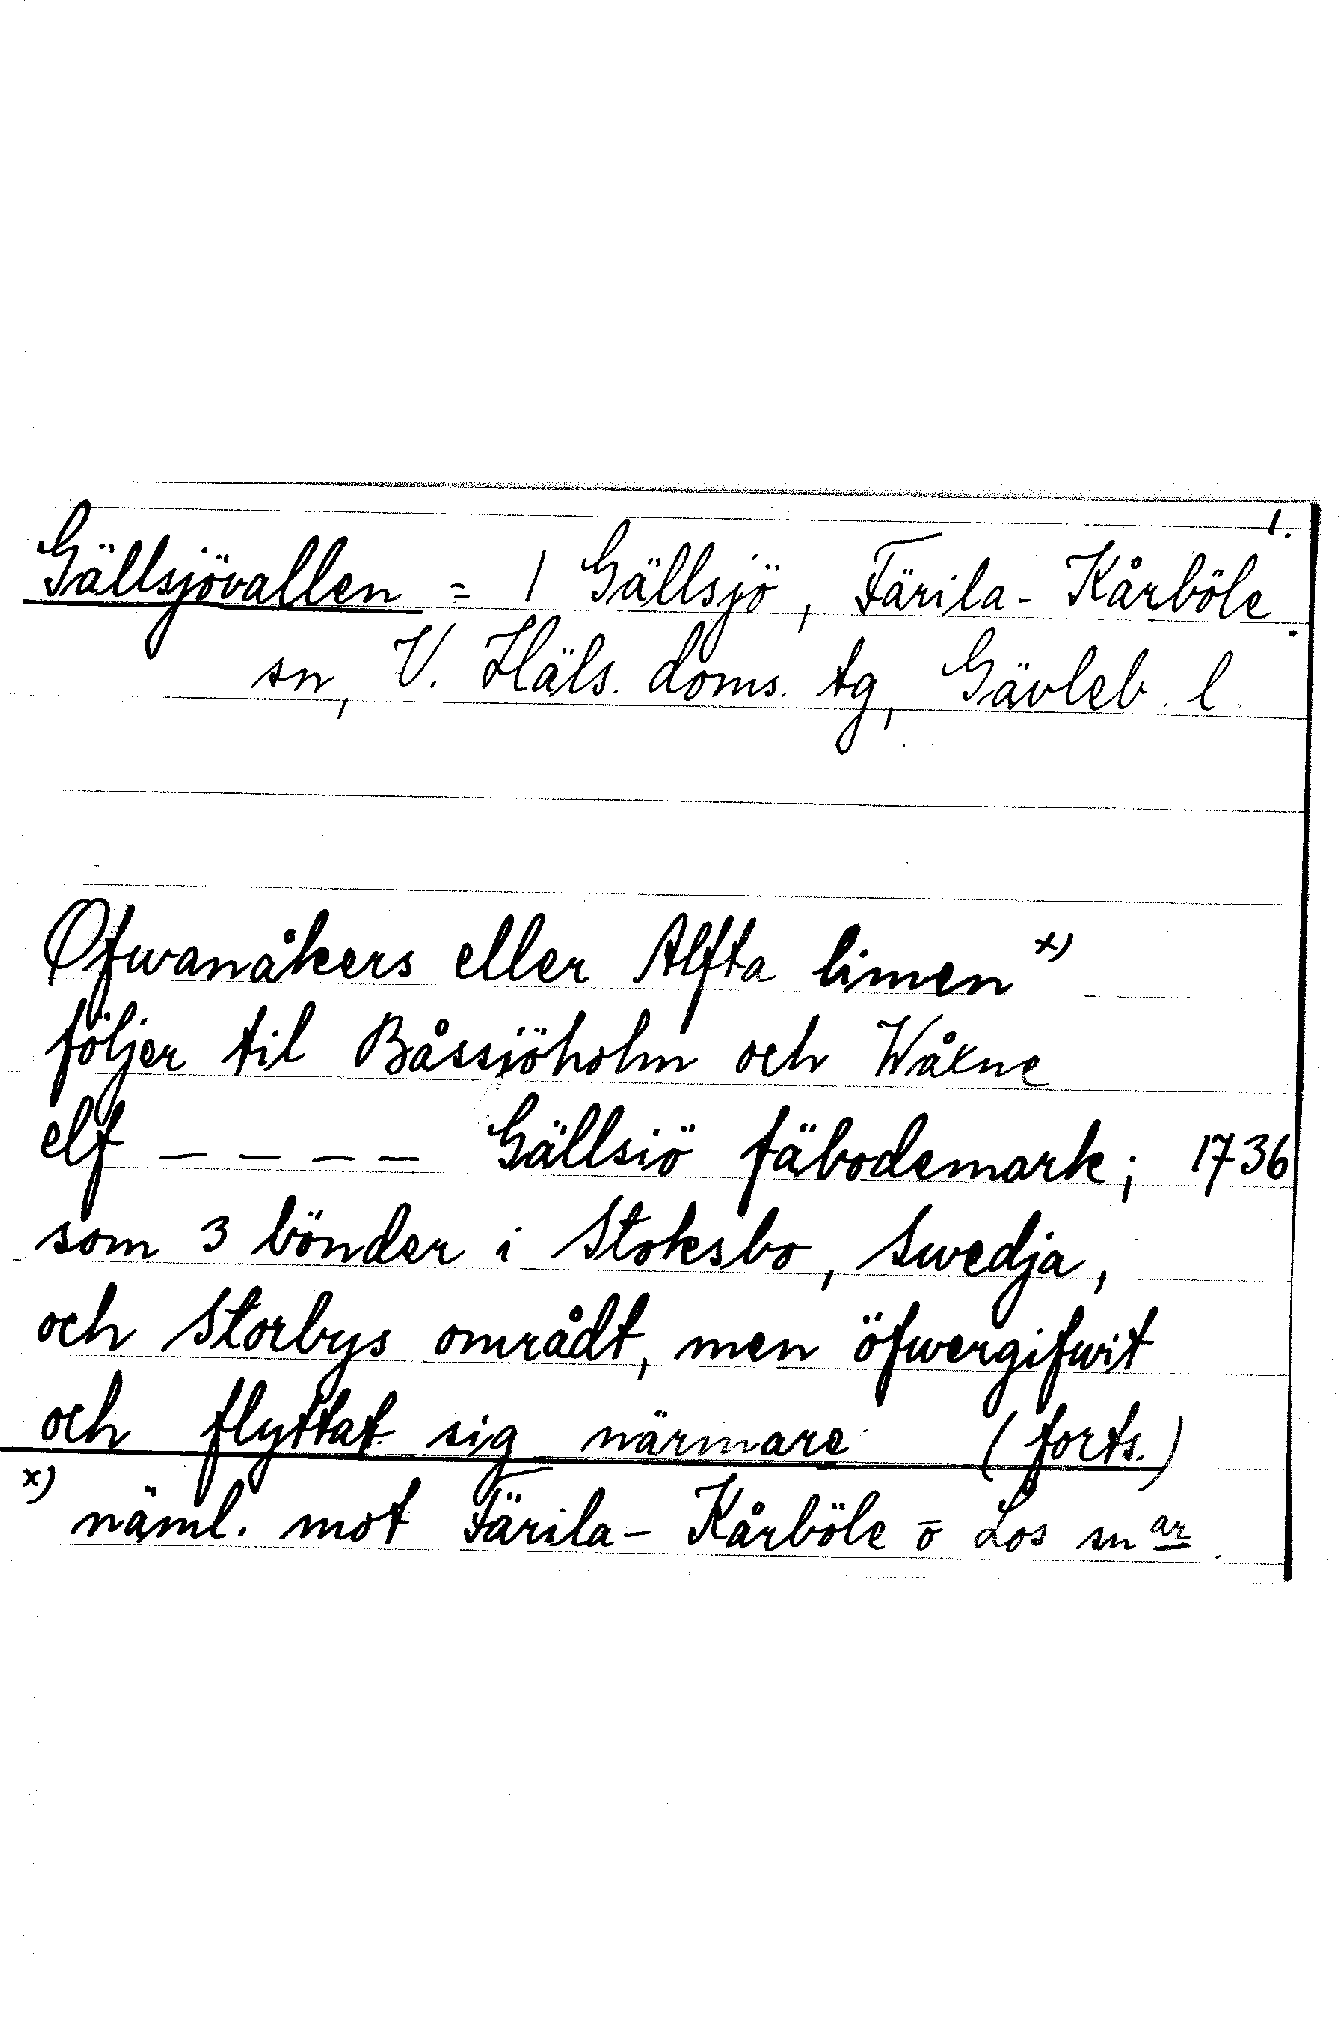 1.
Gällsjövallen = 1 Gällsjö, Färila-Kårböle
sn, V. Häls. doms. tg, Gävleb. l.
Ofwanåkers eller Alfta limen x)
följer til Båssiöholm och Wåxne
elf _ _ _ _ Gällsiö fäbodemark; 1736
som 3 bönder i Stoksbo, Swedja,
och Storbys områdt, men öfwergifwit
och flyttat sig närmare (forts.)
x) näml. mot Färila-Kårböle o Los snar